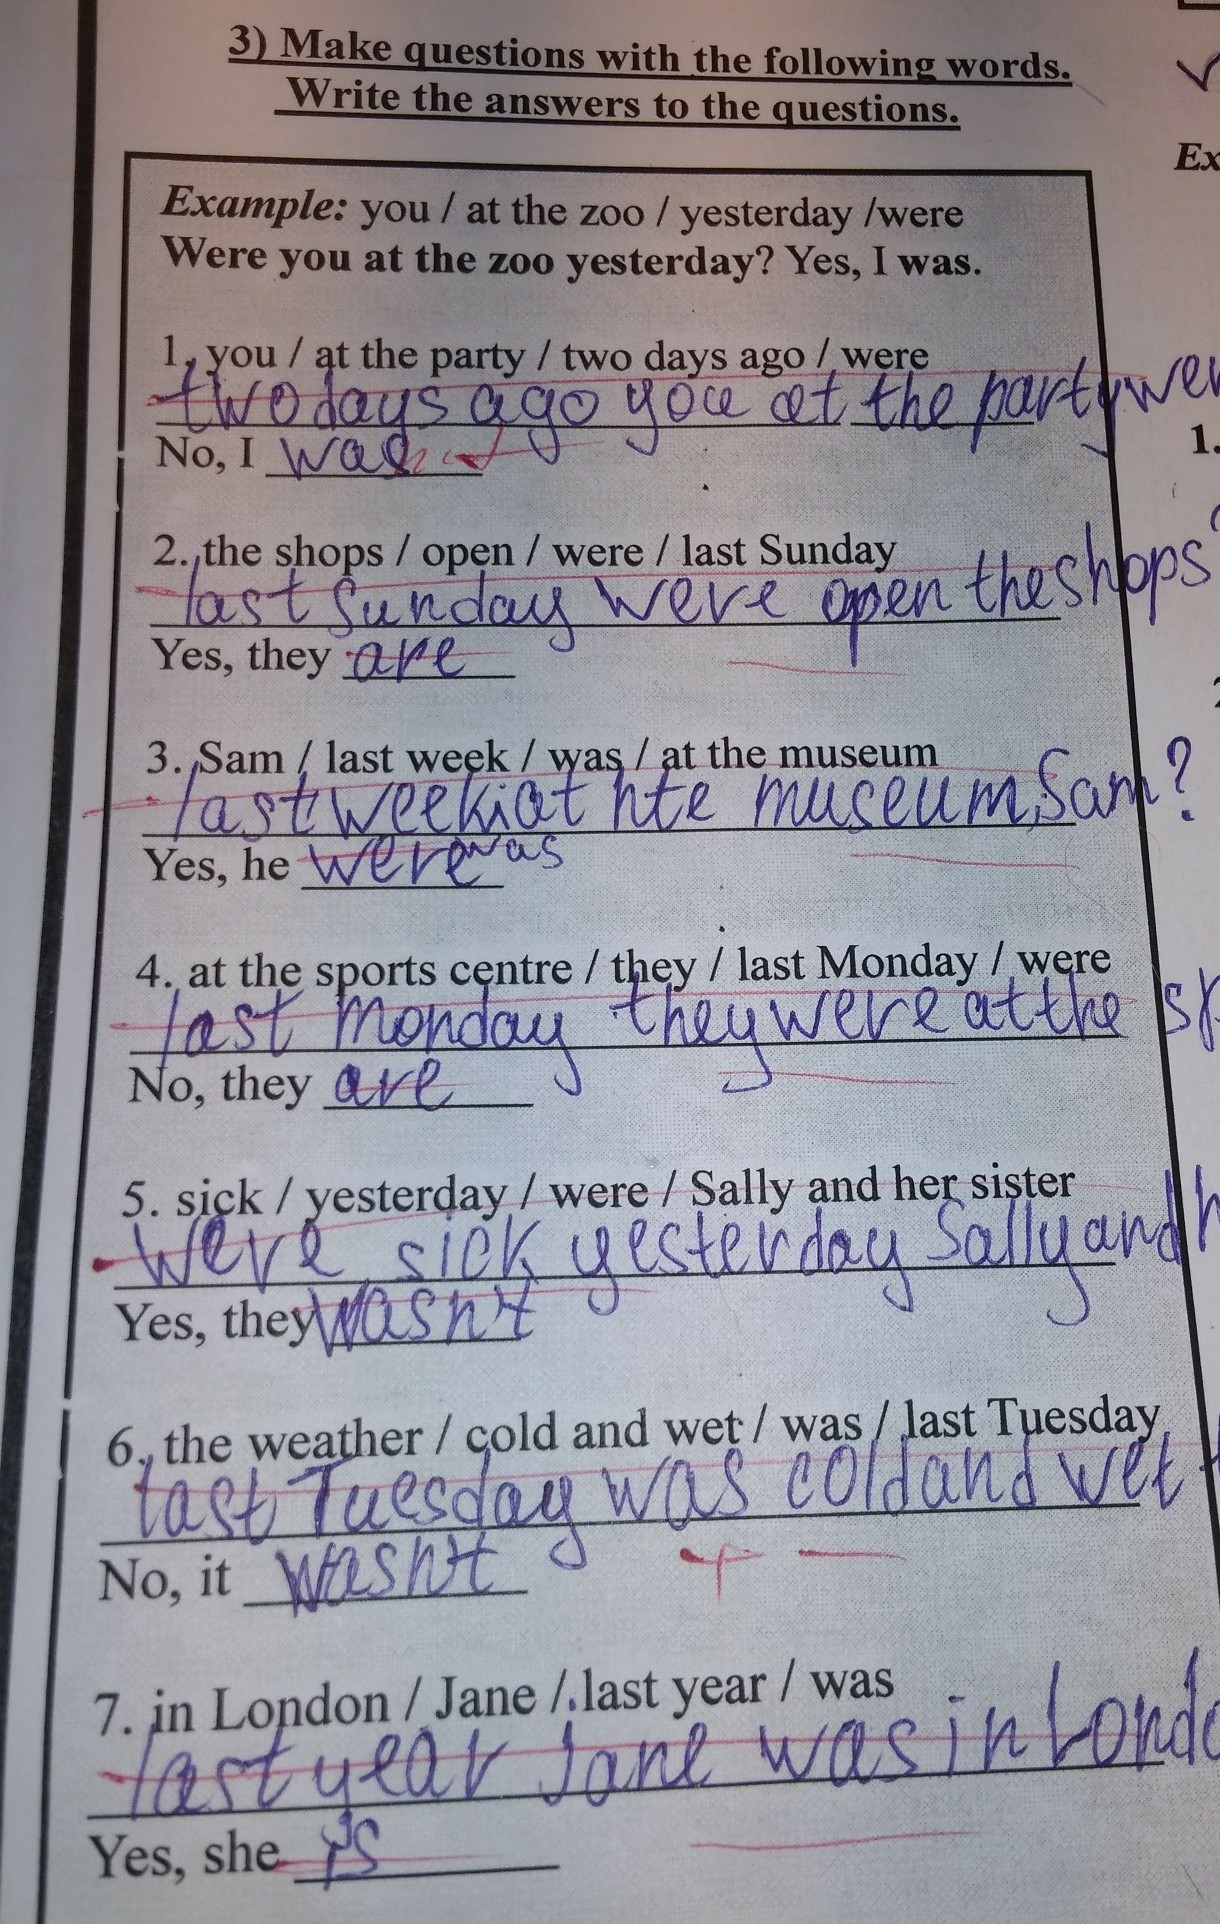 3) Make questions with the following words.
Write the answers to the questions.
Ex
Example: you / at the zoo / yesterday /were
Were you at the zoo yesterday? Yes, I was.
1. you / at the party / two days ago / were
two days ago you at the party wer
No, I was
1.
2. the shops / open / were / last Sunday
last Sunday were open the shops?
Yes, they are
3. Sam / last week / was / at the museum
last week at hte museum Sam?
Yes, he were was
4. at the sports centre / they / last Monday / were
last monday they were at the sp
No, they are
5. sick / yesterday / were / Sally and her sister
Were sick yesterday Sally and h
Yes, they wasn't
6. the weather / cold and wet / was / last Tuesday
last Tuesday was cold and wet t
No, it wasn't
7. in London / Jane / last year / was
last year Jane was in Londo
Yes, she is